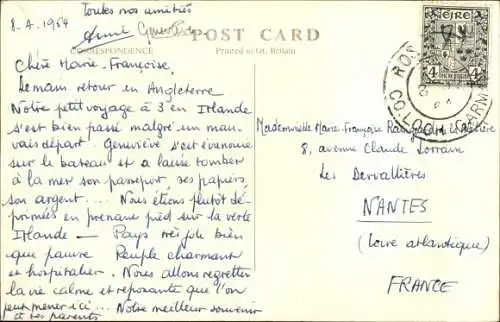 8.4.1964
Toutes nos amitiés
Anne Geneviève
POST CARD
CORRESPONDENCE
Printed in Gt. Britain
Chère Marie-Françoise,
Demain retour en Angleterre
Notre petit voyage à 3 en Irlande
s'est bien passé malgré un mau-
vais départ. Geneviève s'est évanouie
sur le bateau et a laissé tomber
à la mer son passeport, ses papiers,
son argent.... Nous étions plutôt dé-
primées en prenant pied sur la verte
Irlande — Pays très joli bien
que pauvre Peuple charmant
et hospitalier. Nous allons regretter
la vie calme et reposante que l'on
peut mener ici... Notre meilleur souvenir
à tes parents
EIRE
4
ROS
CO. LOCH GARM
Mademoiselle Marie Françoise
8, avenue Claude Lorrain
Les Dervallières
NANTES
(Loire atlantique)
FRANCE